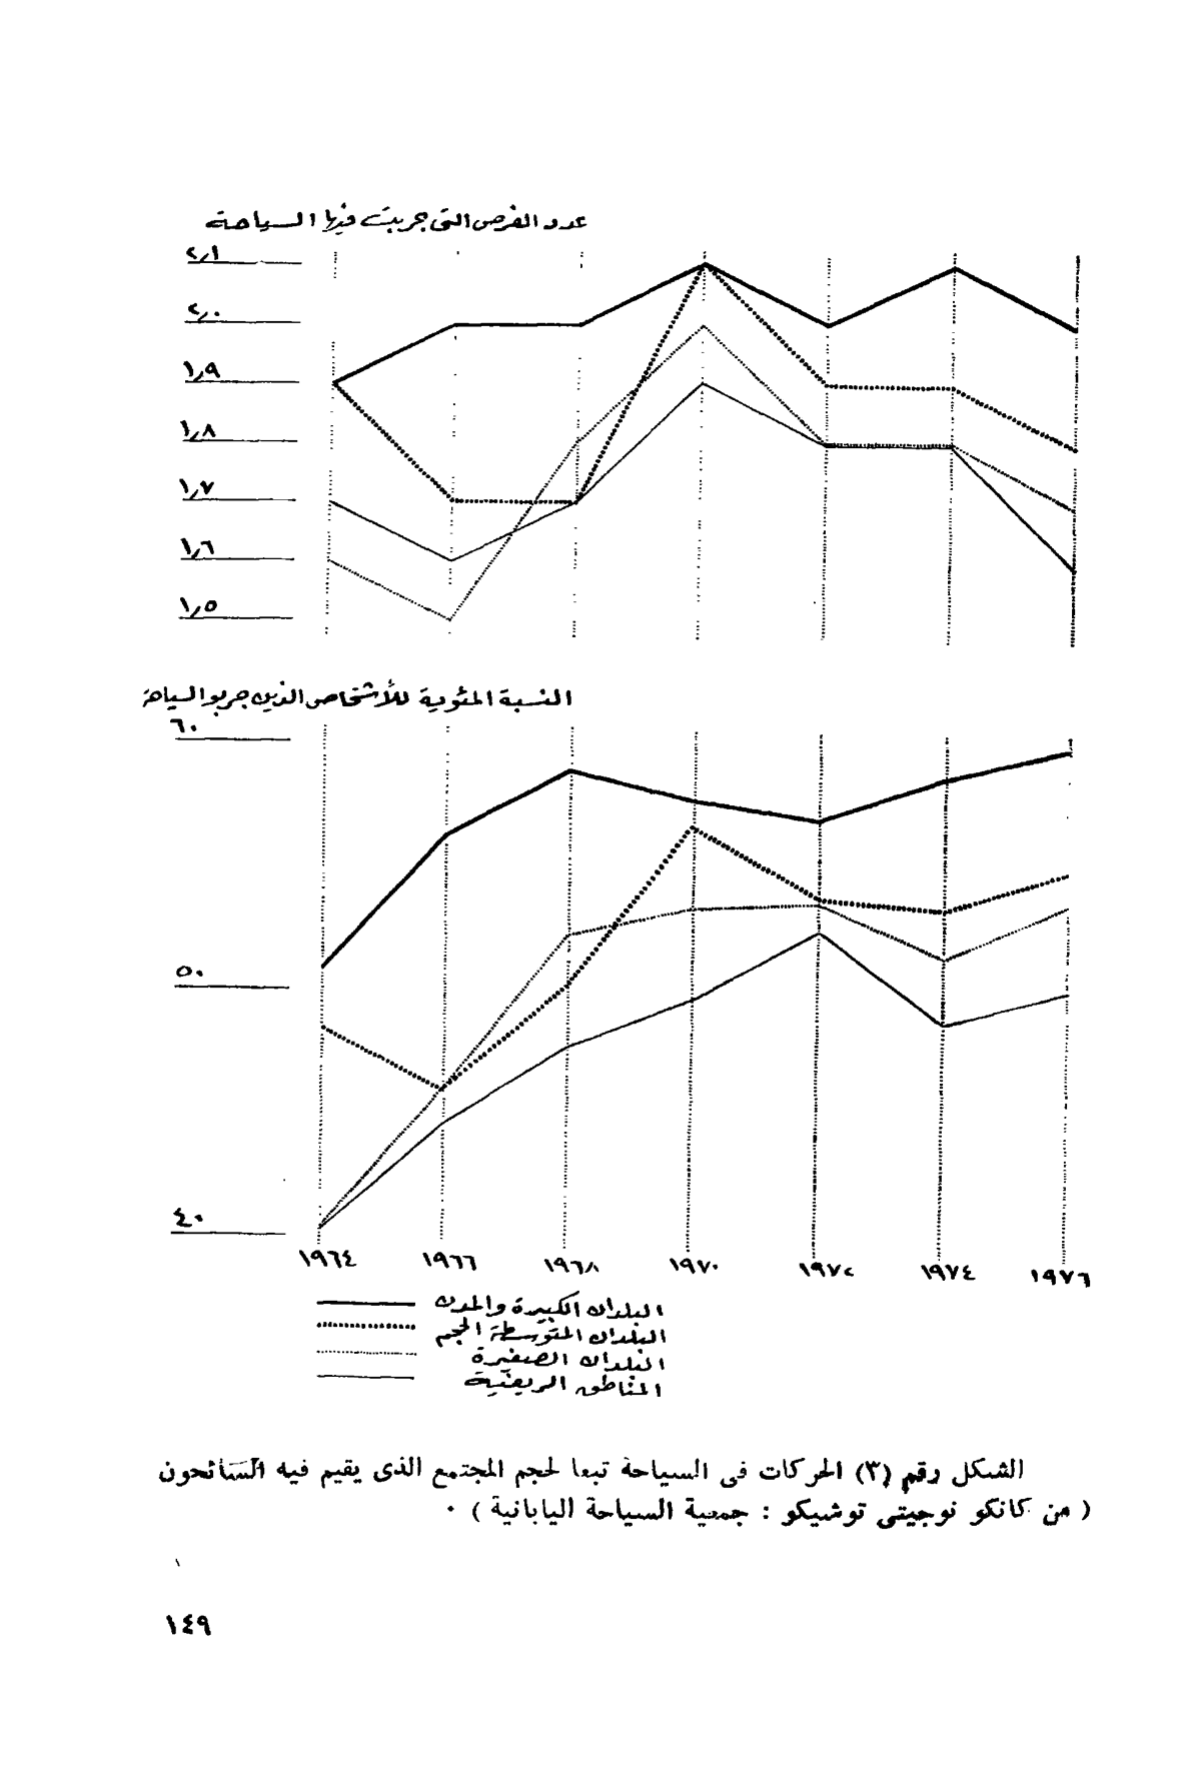 عدد الفرص التى جربت فيها السياحة
٢٫١
٢٫٠
١٫٩
١٫٨
١٫٧
١٫٦
١٫٥
النسبة المئوية للأشخاص الذين جربوا السياحة
٦٠
٥٠
٤٠
١٩٦٤ ١٩٦٦ ١٩٦٨ ١٩٧٠ ١٩٧٢ ١٩٧٤ ١٩٧٦
البلدان الكبيرة والمدن
البلدان المتوسطة الحجم
البلدان الصغيرة
المناطق الريفية
الشكل رقم (٣) الحركات فى السياحة تبعا لحجم المجتمع الذى يقيم فيه السائحون
( من كانكو نوجيتى توشيكو : جمعية السياحة اليابانية ) ٠
١٤٩